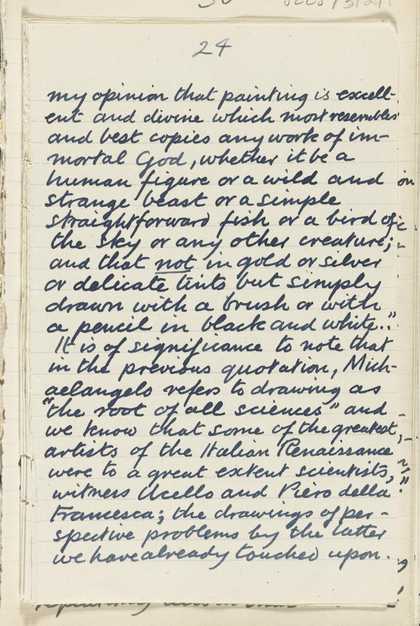 24
my opinion that painting is excell-
ent and divine which most resembles
and best copies any work of im-
mortal God, whether it be a
human figure or a wild and
strange beast or a simple
straightforward fish or a bird of
the sky or any other creature;
and that not in gold or silver
or delicate tints but simply
drawn with a brush or with
a pencil in black and white.."
It is of significance to note that
in the previous quotation, Mich-
aelangelo refers to drawing as
"the root of all sciences" and
we know that some of the greatest
artists of the Italian Renaissance
were to a great extent scientists,
witness Ucello and Piero della
Francesca; the drawings of per-
spective problems by the latter
we have already touched upon.